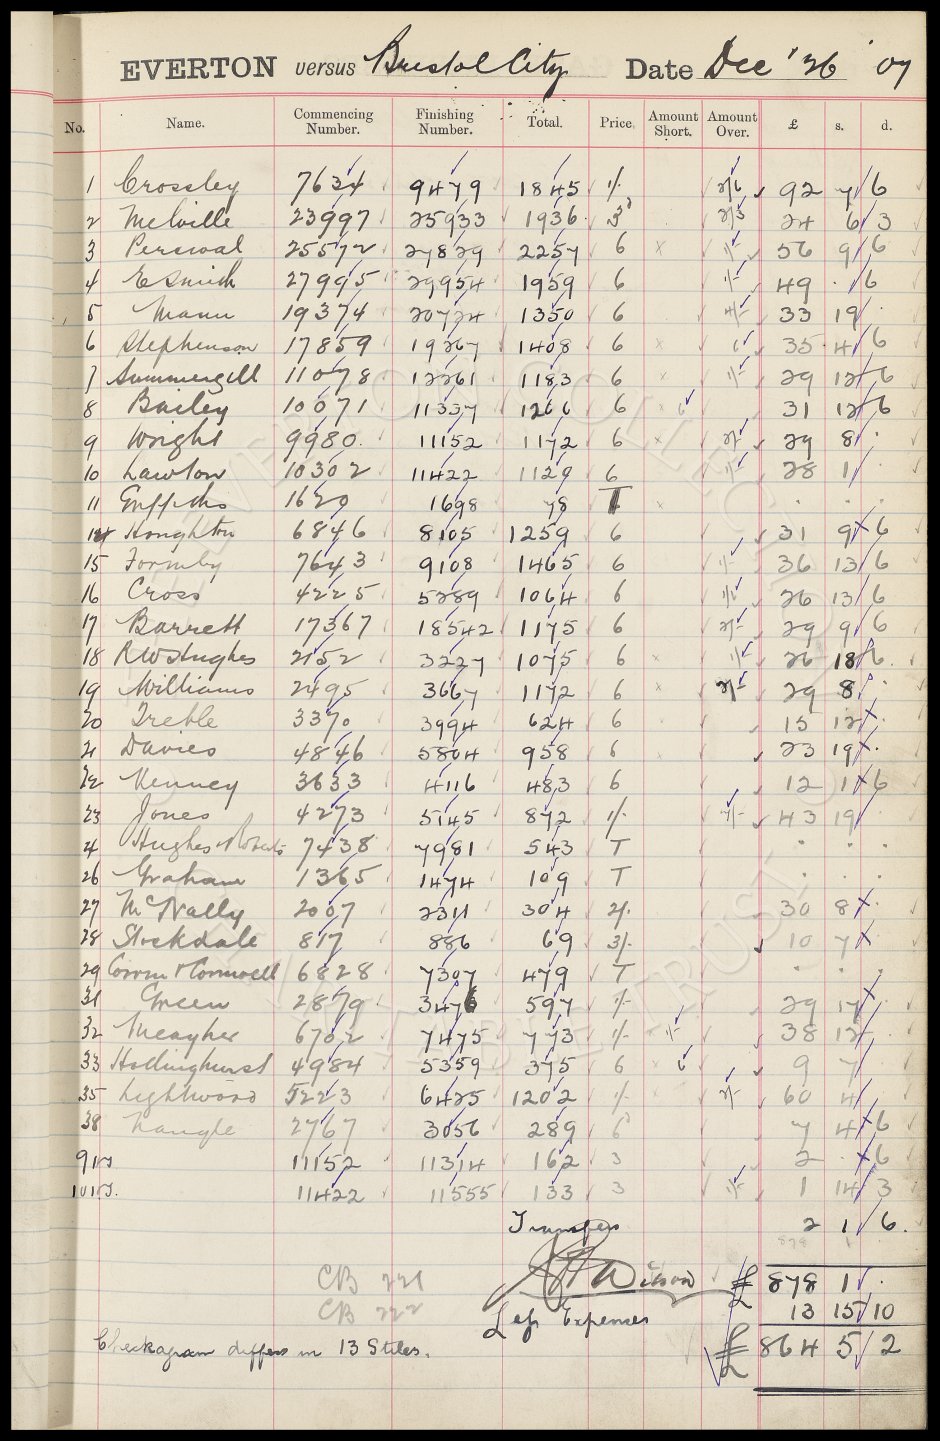 EVERTON versus Bristol City Date Dec' 26 '07
No. Name. Commencing Number. Finishing Number. Total. Price. Amount Short. Amount Over. £ s. d.
1 Crossley 7634 9479 1845 1/- 2/6 92 7 6
2 Melville 23997 25933 1936 3d 2/3 24 6 3
3 Percival 25572 27829 2257 6 1/- 56 9 6
4 E Smith 27995 29954 1959 6 1/- 49 . 6
5 Mann 19374 20724 1350 6 4/- 33 19 .
6 Stephenson 17859 19267 1408 6 6 35 4 6
7 Summergill 11078 12261 1183 6 1/- 29 12 6
8 Bailey 10071 11337 1266 6 6 31 12 6
9 Wright 9980 11152 1172 6 2/- 29 8 .
10 Lawton 10302 11422 1120 6 1/- 28 1 .
11 Griffiths 1620 1698 78 T . . .
Houghton 6846 8105 1259 6 31 9 6
15 Formby 7643 9108 1465 6 1/- 36 13 6
16 Cross 4225 5289 1064 6 1/6 26 13 6
17 Barrett 17367 18542 1175 6 2/- 29 9 6
18 R W Hughes 2152 3227 1075 6 1/- 26 18 6
19 Williams 2495 3667 1172 6 2/- 29 8 .
20 Treble 3370 3994 624 6 15 12 .
21 Davies 4846 5804 958 6 23 19 .
22 Kenney 3633 4116 483 6 12 1 6
23 Jones 4273 5145 872 1/- 7/- 43 19
Hughes & Roberts 7438 7981 543 T . . .
26 Graham 1365 1474 109 T . . .
27 McNally 2007 2311 304 2/- 30 8 .
28 Stockdale 817 886 69 3/- 10 7 .
29 & Cornwell 6828 7307 479 T . . .
31 Green 2879 3476 597 1/- 29 17 .
32 Meagher 6702 7475 773 1/- 1/- 38 12
33 Hollinghurst 4984 5359 375 6 6 9 7
35 Lightwood 5223 6425 1202 1/- 2/- 60 4
38 Nangle 2767 3056 289 6 7 4 6
9 11152 11314 162 3 2 . 6
10 11422 11555 133 3 1/- 1 14 3
Transfers 2 1 6.
878 1
CB 221 Wilson £ 878 1 .
CB 222 Less Expenses 13 15 10
Checkagram differs in 13 Stiles. £ 864 5 2
EVERTON COLLECTION CHARITABLE TRUST